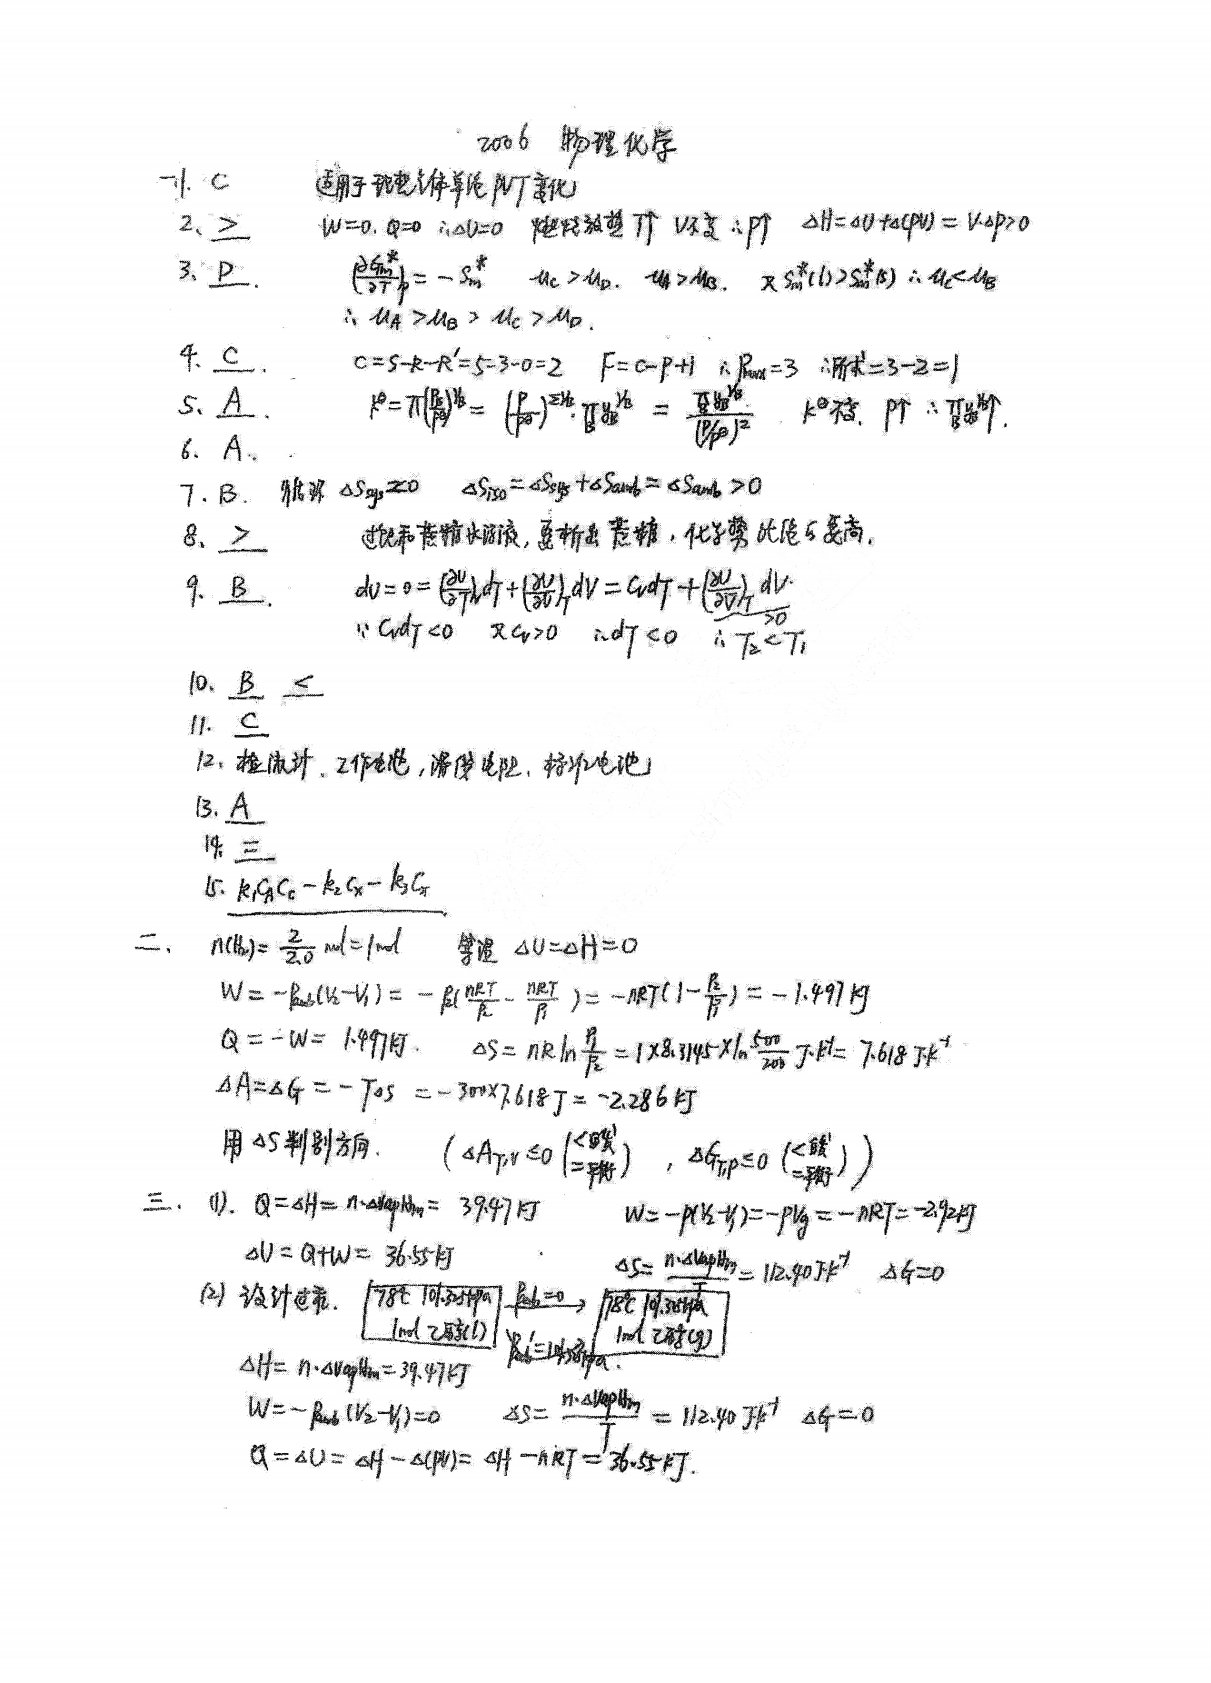 2006 物理化学
一、1. C 适用于理想气体单纯PVT变化
2、 > W=0, Q=0 ∴ΔU=0 燃烧放热 T↑ V不变 ∴p↑ ΔH=ΔU+Δ(pV)=VΔp>0
3、 D. (∂Gm*/∂T)p = -Sm* μC>μD. μA>μB. 又Sm*(l)>Sm*(s) ∴μC<μB
∴ μA>μB>μC>μD.
4. C. C=S-R-R'=5-3-0=2 F=C-P+1 ∴Pmax=3 ∴所求=3-2=1
5、 A. K^θ=π(pB/p^θ)^νB = (p/p^θ)^ΣνB · πB yB^νB = πB yB^νB/(p/p^θ)^2 . K^θ不变, p↑ ∴πB yB^νB↑.
6、 A.
7. B. 循环 ΔSsys=0 ΔSiso=ΔSsys+ΔSamb=ΔSamb>0
8、 > 过饱和蔗糖水溶液,要析出蔗糖,化学势比饱和要高.
9. B. dU=0=(∂U/∂T)V dT+(∂U/∂V)T dV=CvdT+(∂U/∂V)T dV.
>0
∴ CvdT<0 又Cv>0 ∴dT<0 ∴T2<T1
10、 B <
11. C
12、检流计、工作电池,滑线电阻、标准电池
13. A
14. 三
15. k1CACC-k2CX-k3CX
二、 n(H2)=2/2.0 mol=1mol 等温 ΔU=ΔH=0
W=-Pamb(V2-V1)=-p2(nRT/p2-nRT/p1)=-nRT(1-p2/p1)=-1.497kJ
Q=-W=1.497kJ. ΔS=nRln p1/p2=1×8.3145×ln 500/200 J·K⁻¹=7.618J·K⁻¹
ΔA=ΔG=-TΔS=-300×7.618J=-2.286kJ
用ΔS判别方向. (ΔAT,V≤0(<自发 =平衡), ΔGT,p≤0(<自发 =平衡))
三. (1). Q=ΔH=n·ΔvapHm=39.47kJ W=-p(V2-V1)=-pVg=-nRT=-2.92kJ
ΔU=Q+W=36.55kJ ΔS=n·ΔvapHm/T=112.40J·K⁻¹ ΔG=0
(2) 设计过程. 78℃ 101.325kPa 1mol乙醇(l) Pamb=0 → 78℃ 101.325kPa 1mol乙醇(g)
ΔH=n·ΔvapHm=39.47kJ
W=-Pamb(V2-V1)=0 ΔS=n·ΔvapHm/T=112.40J·K⁻¹ ΔG=0
Q=ΔU=ΔH-Δ(pV)=ΔH-nRT=36.55kJ.